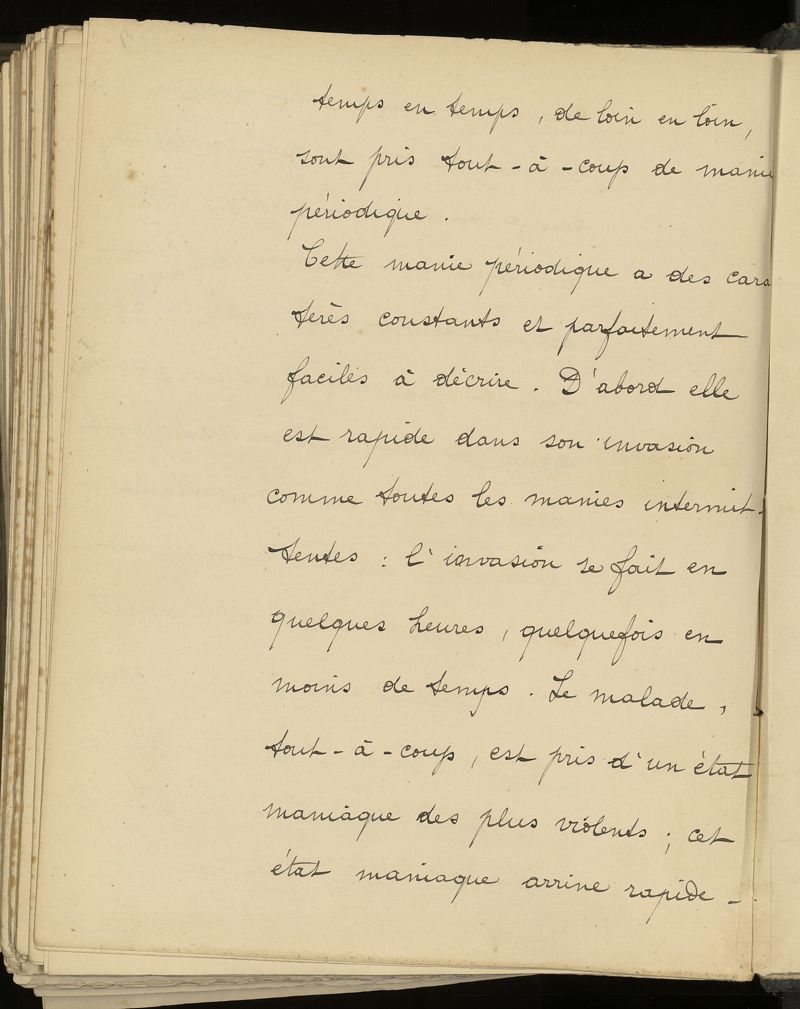 temps en temps, de loin en loin,
sont pris tout-à-coup de manie
périodique.
Cette manie périodique a des cara
tères constants et parfaitement
faciles à décrire. D'abord elle
est rapide dans son invasion
comme toutes les manies intermit-
tentes : l'invasion se fait en
quelques heures, quelquefois en
moins de temps. Le malade,
tout-à-coup, est pris d'un état
maniaque des plus violents ; cet
état maniaque arrive rapide-